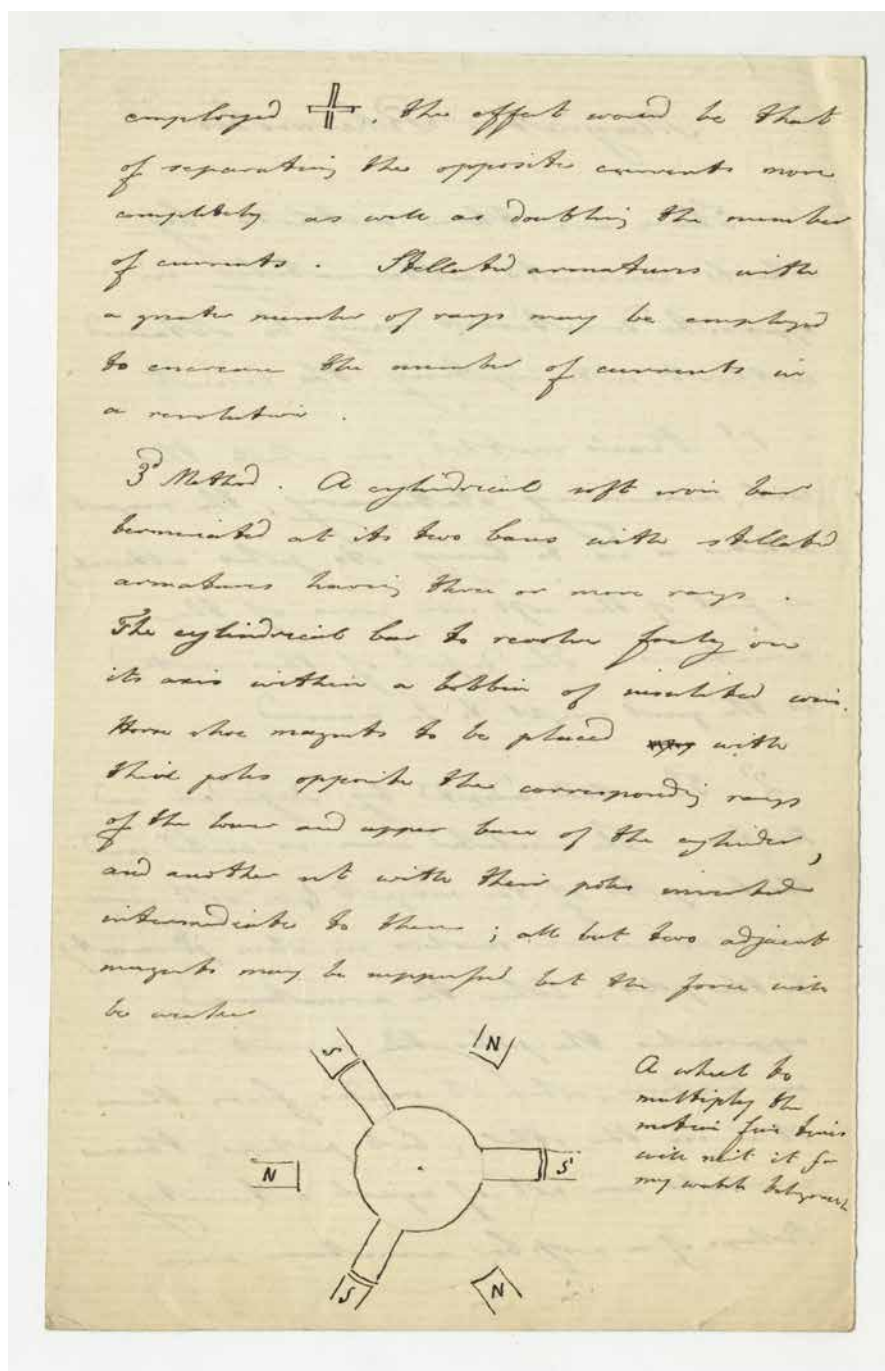 employed . the effect would be that
of separating the opposite currents more
completely as well as doubling the number
of currents . Stellated armatures with
a greater number of rays may be employed
to encrease the number of currents in
a revolution .
3d Method . A cylindrical soft iron bar
terminated at its two bases with stellated
armatures having three or more rays .
The cylindrical bar to revolve freely on
its axis within a bobbin of insulated wire.
Horse shoe magnets to be placed with
their poles opposite the corresponding rays
of the lower and upper base of the cylinder,
and another set with their poles inverted
intermediate to them ; all but two adjacent
magnets may be suppressed but the force will
be weaker
S
N
N
S
S
N
A wheel to
multiply the
motion five times
will suit it for
my watch telegraph